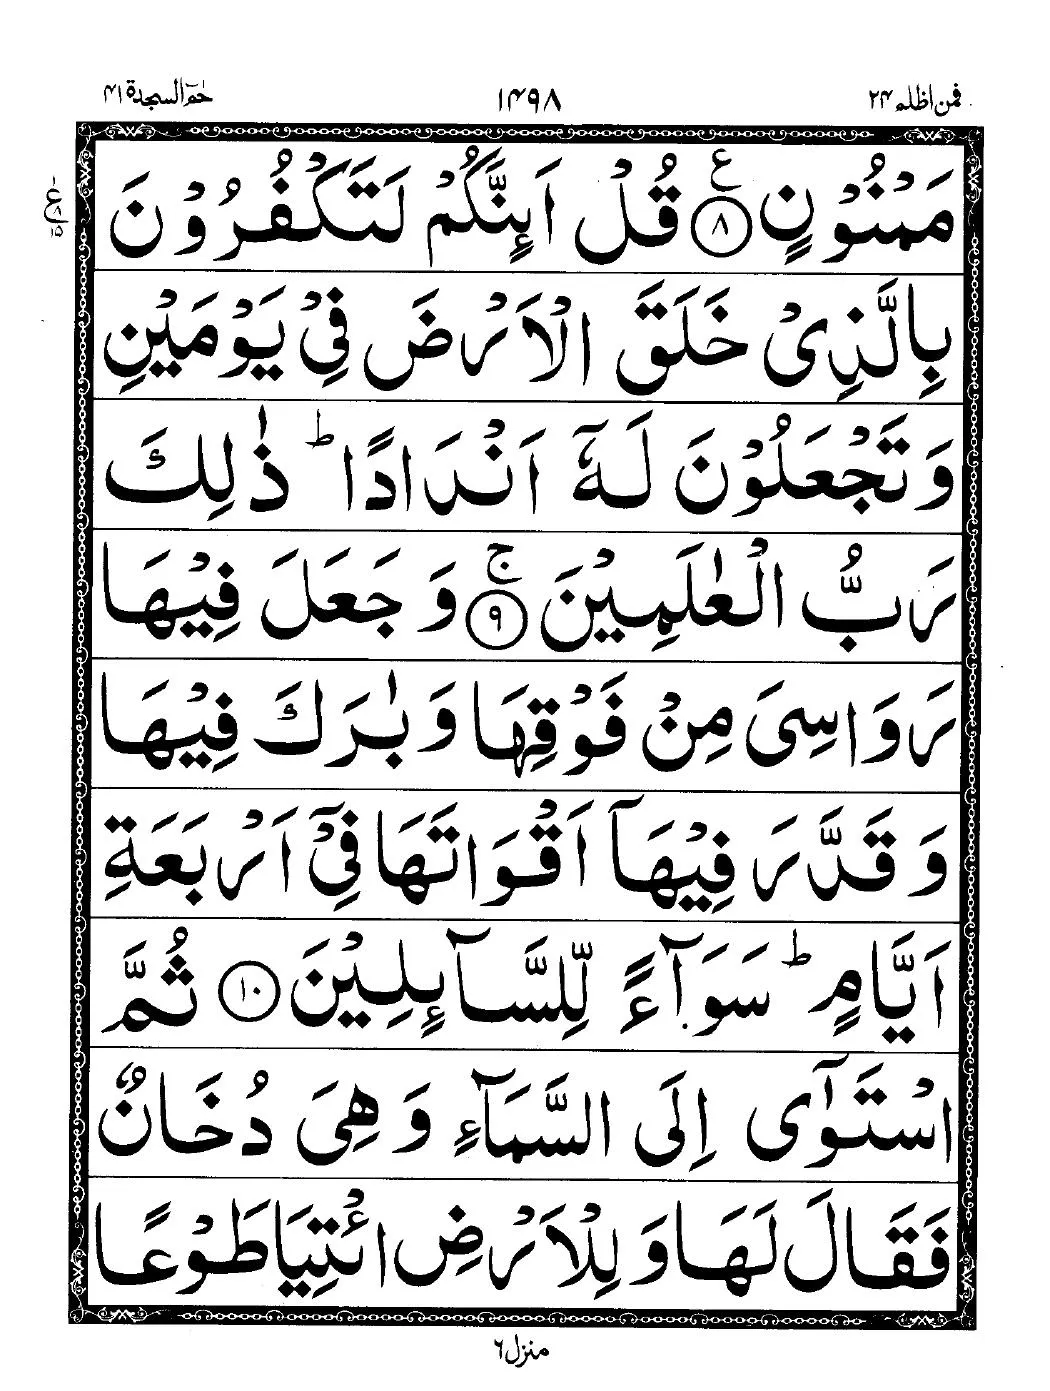 فمن اظلم ۲۴
۱۴۹۸
حٰمٓ السجدة ۴۱
مَمۡنُوۡنٍ ۸ ع قُلۡ اَٮِٕنَّكُمۡ لَتَكۡفُرُوۡنَ
ع ۱ ۸ ۱۵
بِالَّذِىۡ خَلَقَ الۡاَرۡضَ فِىۡ يَوۡمَيۡنِ
وَتَجۡعَلُوۡنَ لَهٗۤ اَنۡدَادًا ؕ ذٰلِكَ
رَبُّ الۡعٰلَمِيۡنَ ۹ ۚ وَ جَعَلَ فِيۡهَا
رَوَاسِىَ مِنۡ فَوۡقِهَا وَ بٰرَكَ فِيۡهَا
وَ قَدَّرَ فِيۡهَاۤ اَقۡوَاتَهَا فِىۡۤ اَرۡبَعَةِ
اَيَّامٍ ؕ سَوَآءً لِّلسَّآٮِٕلِيۡنَ ۱۰ ثُمَّ
اسۡتَـوٰۤى اِلَى السَّمَآءِ وَهِىَ دُخَانٌ
فَقَالَ لَهَا وَلِلۡاَرۡضِ ائۡتِيَا طَوۡعًا
منزل ۶